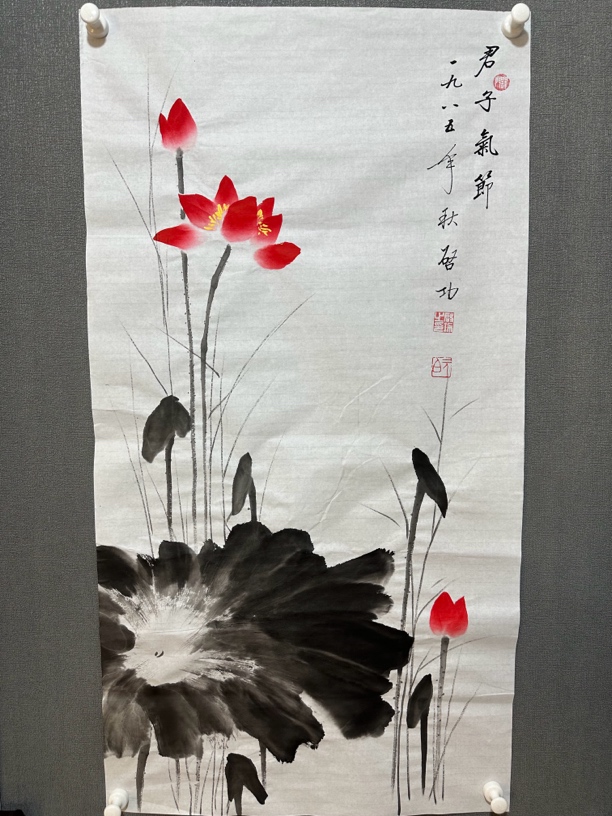 君子氣節
一九八五年秋啓功